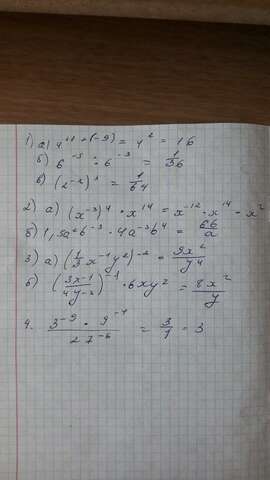 1) а) 4¹¹ · ⁽⁻⁹⁾ = 4² = 16
б) 6⁻⁵ : 6⁻³ = 1/36
в) (2⁻²)³ = 1/64
2) а) (x⁻³)⁴ · x¹⁴ = x⁻¹² · x¹⁴ = x²
б) 1,5a²b⁻³ · 4a⁻³b⁴ = 6b/a
3) а) (1/3 x⁻¹y²)⁻² = 9x²/y⁴
б) (3x⁻¹/4y⁻³)⁻¹ · 6xy² = 8x²/y
4. 3⁻⁹ · 9⁻⁴/27⁻⁶ = 3/1 = 3